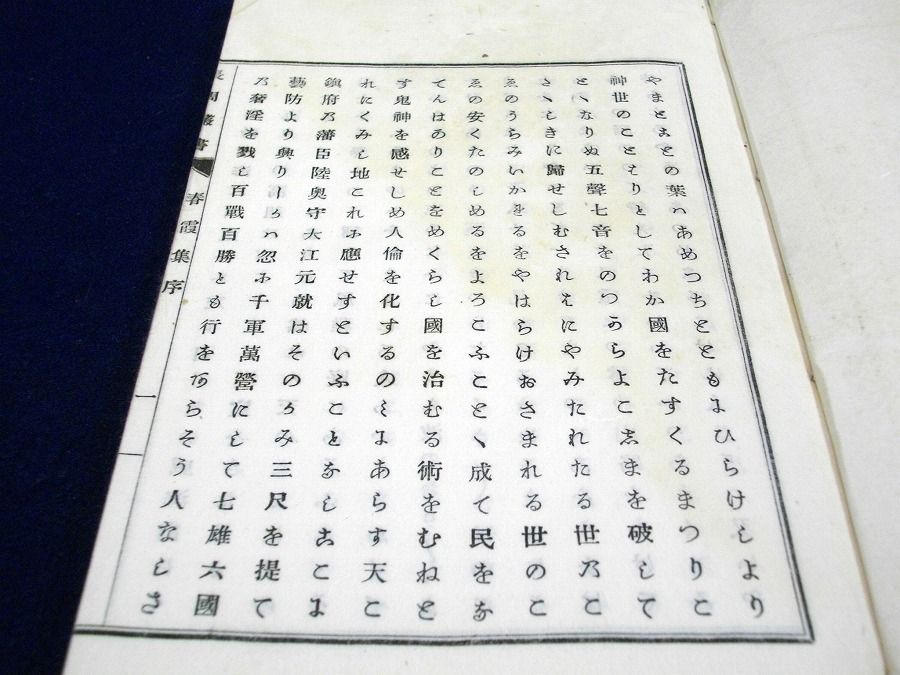 やまとことの葉ハあめつちとともにひらけしより
神世のことはりとしてわか國をたすくるまつりこ
とゝなりぬ五聲七音をのつからよこしまを破して
たゝしきに歸せしむされはにやみたれたる世乃こ
ゑのうらみいかれるをやはらけおさまれる世のこ
ゑの安くたのしめるをよろこふことく成て民をな
てんはのりことをめくらし國を治むる術をむねと
す鬼神を感せしめ人倫を化するのみにあらす天こ
れにくみし地これに應せすといふことなしここに
鎮府乃藩臣陸奥守大江元就はそのかみ三尺を提て
藝防より興りしかハ忽に千軍萬營にして七雄六國
乃奢淫を戮し百戰百勝とも行をあらそう人なしさ
長周叢書 春霞集序 一